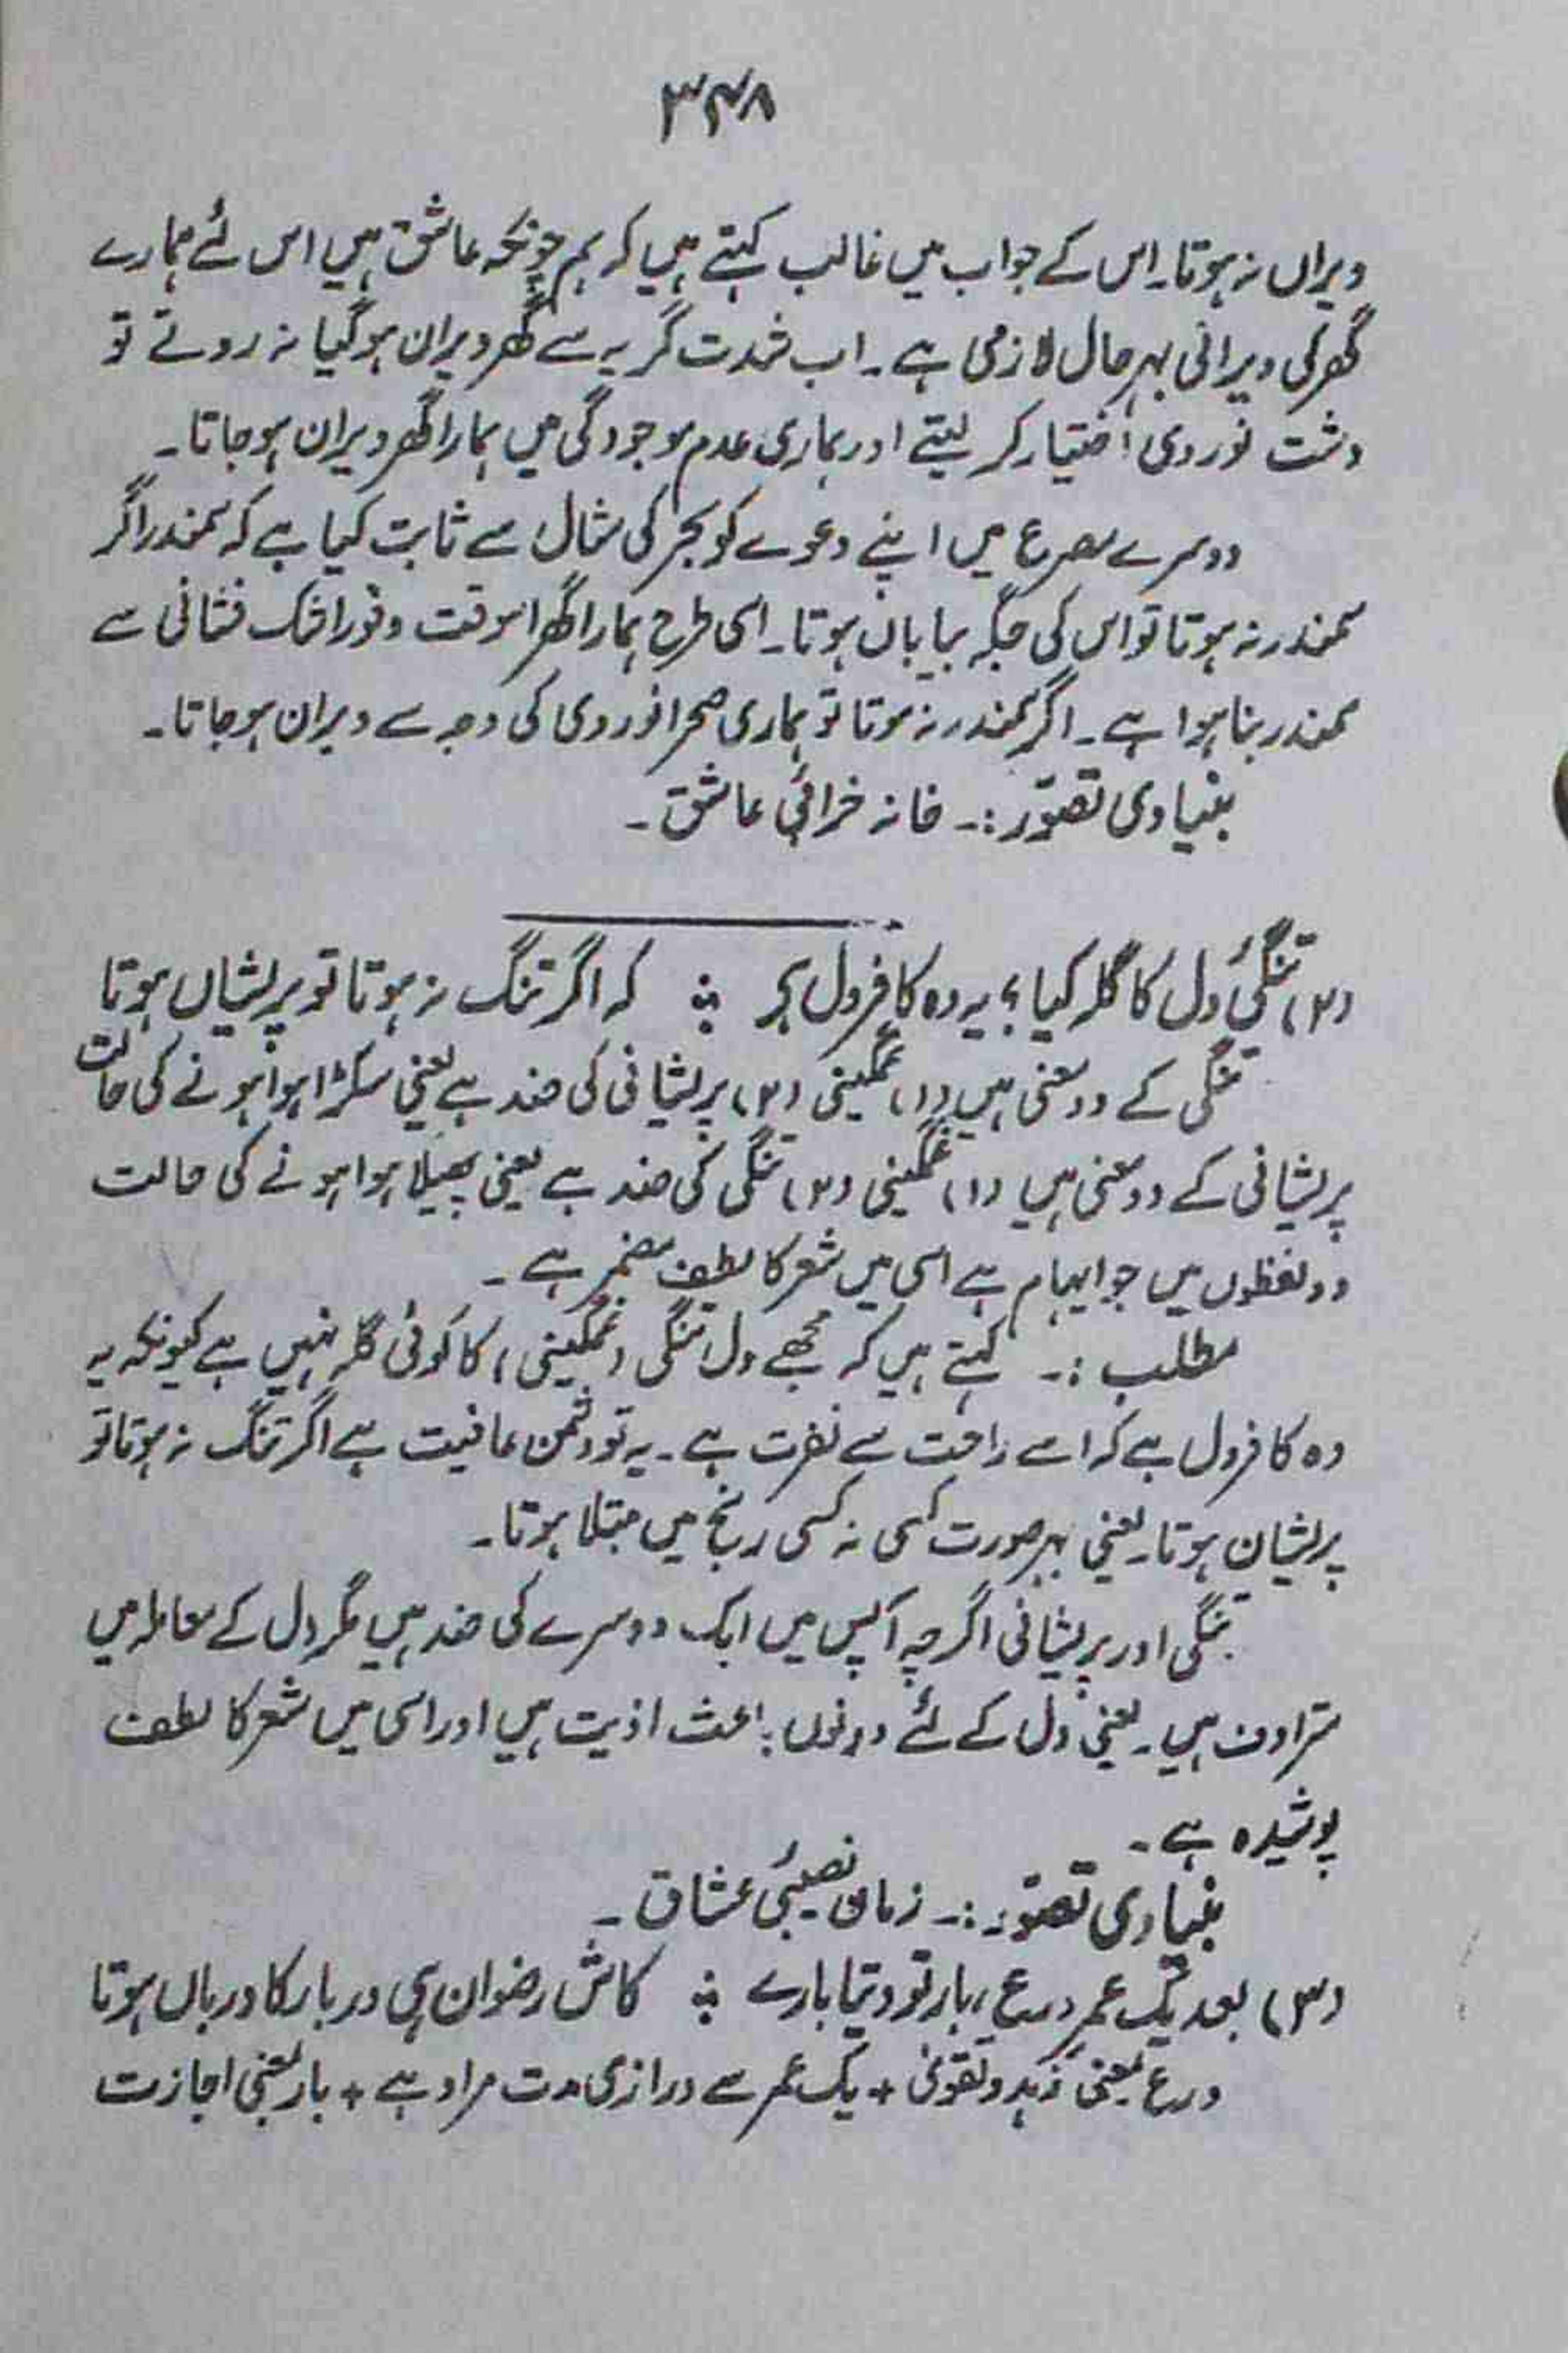 ۳۴۸
ویراں نہ ہوتا۔ اس کے جواب میں غالب کہتے ہیں کہ ہم چونکہ عاشق ہیں اس لئے ہمارے
گھر کی ویرانی بہر حال لازمی ہے۔ اب شدت گریہ سے گھر ویران ہو گیا نہ روتے تو
دشت نوردی اختیار کر لیتے اور ہماری عدم موجودگی میں ہمارا گھر ویران ہو جاتا۔
دوسرے مصرع میں اپنے دعوے کو بحر کی مثال سے ثابت کیا ہے کہ سمندر اگر
سمندر نہ ہوتا تو اس کی جگہ بیاباں ہوتا۔ اسی طرح ہمارا گھر اسوقت وفور اشک فشانی سے
سمندر بنا ہوا ہے۔ اگر سمندر نہ ہوتا تو ہماری صحرا نوردی کی وجہ سے ویران ہو جاتا۔
بنیادی تصوّر :۔ خانہ خرابیٔ عاشق۔
(۲) تنگیٔ دل کا گلہ کیا؟ یہ وہ کافر دل ہے ؞ کہ اگر تنگ نہ ہوتا تو پریشاں ہوتا
تنگی کے دو معنی ہیں (۱) غمگینی (۲) پریشانی کی ضد ہے یعنی سکڑا ہوا ہونے کی حالت
پریشانی کے دو معنی ہیں (۱) غمگینی (۲) تنگی کی ضد ہے یعنی پھیلا ہوا ہونے کی حالت
دو لفظوں میں جو ایہام ہے اسی میں شعر کا لطف مضمر ہے۔
مطلب :۔ کہتے ہیں کہ مجھے دل تنگی (غمگینی) کا کوئی گلہ نہیں ہے کیونکہ یہ
وہ کافر دل ہے کہ اسے راحت سے نفرت ہے۔ یہ تو دشمن عافیت ہے اگر تنگ نہ ہوتا تو
پریشان ہوتا۔ یعنی بہر صورت کسی نہ کسی رنج میں مبتلا ہوتا۔
تنگی اور پریشانی اگرچہ آپس میں ایک دوسرے کی ضد ہیں مگر دل کے معاملہ میں
مترادف ہیں۔ یعنی دل کے لئے دونوں باعث اذیت ہیں اور اسی میں شعر کا لطف
پوشیدہ ہے۔
بنیادی تصوّر :۔ نصیبیٔ عشاق۔
(۳) بعد یک عمر ورع، بار تو دیتا بارے ؞ کاش رضوان ہی در یار کا درباں ہوتا
ورع بمعنی زہد و تقویٰ + یک عمر سے درازی مدت مراد ہے + بار بمعنی اجازت